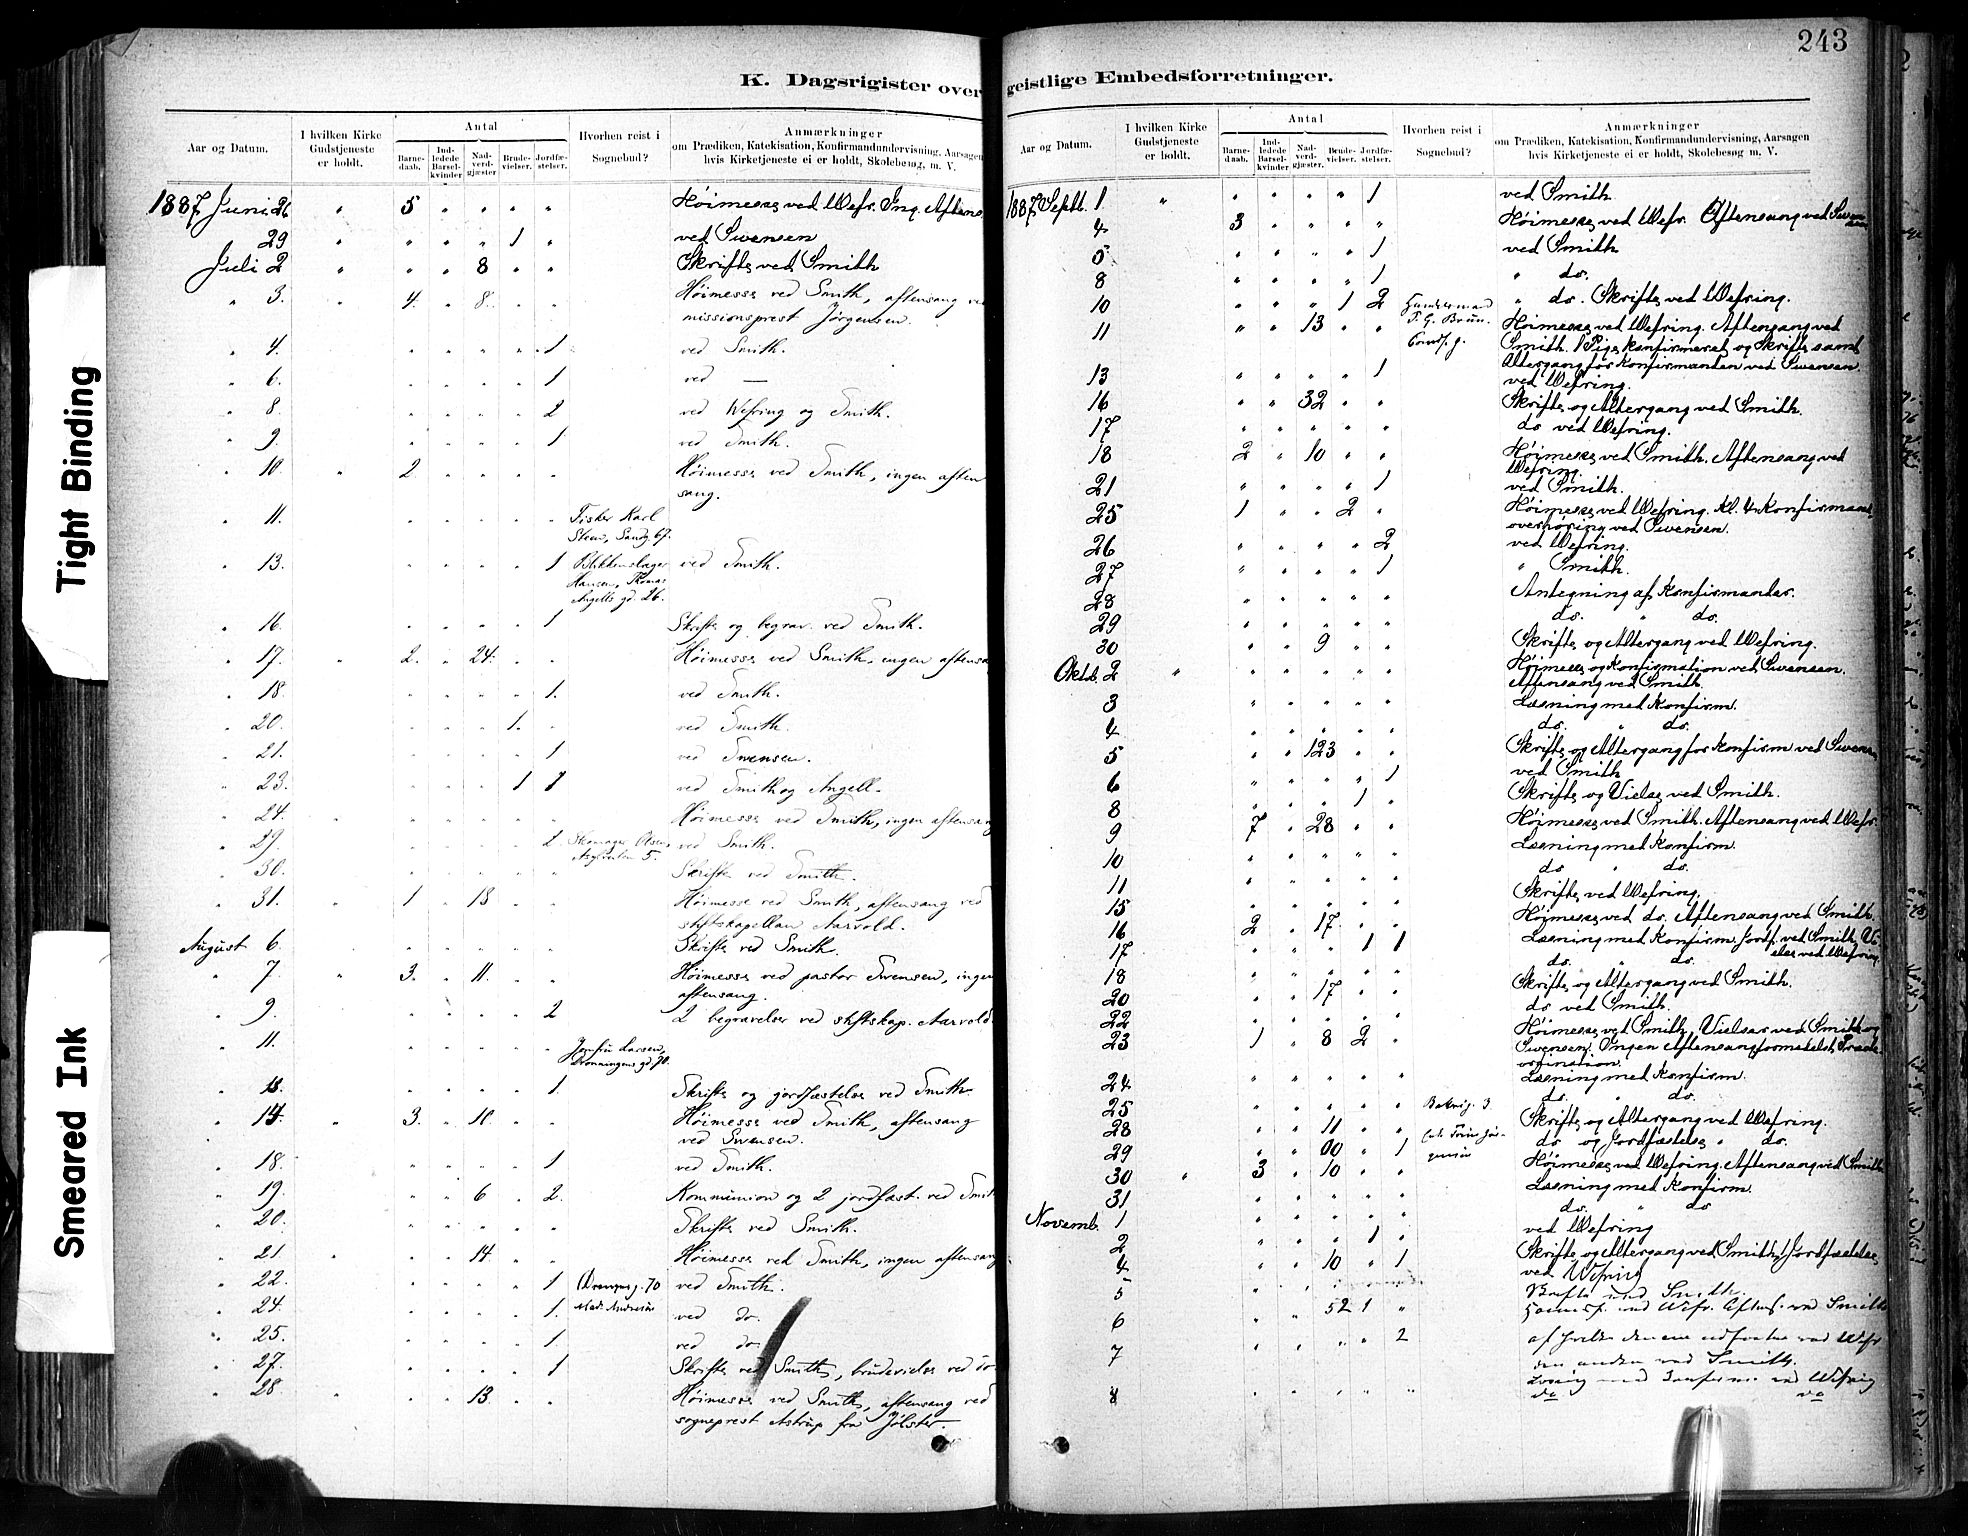 243
K. Dagsrigister over geistlige Embedsforretninger.
Aar og Datum.
I hvilken Kirke Gudstjeneste er holdt.
Antal
Barnedaab.
Indledede Barselkvinder
Nadverdgjæster
Brudevielser.
Jordfæstelser.
Hvorhen reist i Sognebud?
Anmærkninger
om Prædiken, Katekisation, Konfirmandundervisning, Aarsagen
hvis Kirketjeneste ei er holdt, Skolebesøg, m. V.
1887 Juni 26 " 5 " " " " Høimesse ved Wefr. Ing. Aftens.
29 " " " " 1 " ved Swensen
Juli 2 " " " 8 " " Skrifte ved Smith
" 3. " 4. " 8. " " Høimesse ved Smith, aftensang ved
missionsprest Jørgensen.
" 4. " " " " 1 ved Smith.
" 6. " " " " 1 ved —
" 8. " " " " 2 ved Wefring og Smith.
" 9. " " " " 1 ved Smith.
" 10. " 2 " " " " Høimesse ved Smith, ingen aften
sang.
" 11. " " " " " Fisker Karl
Steen, Sandg 67.
" 13. " " " " 1 Blikkenslager ved Smith.
Hansen, Thomas
Angells gd. 26.
" 16. " " " " 1 Skrifte og begrav. ved Smith.
" 17. " 2. " 24. " " Høimesse ved Smith, ingen aftensa
" 18. " " " " 1. ved Smith.
" 20. " " " 1. " ved Smith.
" 21. " " " " 1 ved Swensen.
" 23. " " " 1 1 ved Smith og Angell.
" 24. " " " " " " Høimesse ved Smith, ingen aftensang
" 29. " " " " 2 Skomager Olsen, ved Smith.
5.
" 30. " " " " " Skrifte ved Smith.
" 31. " 1 " 13 " " Høimesse ved Smith, aftensang ved
stiftskapellan Aarvold.
August 6. " " " " " Skrifte ved Smith.
" 7 " 3. " 11. " " Høimesse ved pastor Swensen, ingen
aftensang.
" 9. " " " " 2 2 begravelser ved stiftskap. Aarvold.
" 11. " " " " " Larsen,
Dronningens gd 70.
" 13. " " " " 1. Skrifte og jordfæstelse ved Smith
" 14. " 3. " 11. " " Høimesse ved Smith, aftensang
ved Swensen.
" 18. " " " " 1 ved Smith.
" 19. " " 6 " 2. Kommunion og 2 jordfæst. ved Smit
" 20. " " " " " Skrifte ved Smith.
" 21 " " " 14 " " Høimesse ved Smith, ingen aftensang
" 22. " " " " 1 Drongns g. 70 ved Smith.
" 24. " " " " 1. Mad. Andresen ved do.
" 25. " " " " 1. ved do.
" 27. " " " " 1 Skrifte ved Smith, brudevielse ved do.
" 28 " " " 13. " " Høimesse ved Smith, aftensang ved
sogneprest Astrup fra Jølster.
Aar og Datum.
I hvilken Kirke Gudstjeneste er holdt.
Antal
Barnedaab.
Indledede Barselkvinder
Nadverdgjæster.
Brudevielser.
Jordfæstelser.
Hvorhen reist i Sognebud?
Anmærkninger
om Prædiken, Katekisation, Konfirmandundervisning, Aarsagen
hvis Kirketjeneste ei er holdt, Skolebesøg m. V.
1887 Septb. 1 " " " " " 1 ved Smith
4 3 " " " " Høimesse ved Wefr. Aftensang ved Swensen
5 " " " " 1 ved Smith
8 " " " " 1 " do.
10 " " " 1 2 " do. Skrifte ved Wefring.
T. G. Brun.
11 " " 13 " " Høimesse ved Wefring. Aftensang ved
Smith. 1 Pige konfirmeret og Skrifte samt
Altergang for Konfirmanden ved Swensen.
13 " " " " 1 ved Wefring.
16 " " 32 " " Skrifte og Altergang ved Smith.
17 " " " " " do ved Wefring.
18 2 " 10 " " Høimesse ved Smith. Aftensang ved
Wefring.
21 " " " " 1 ved Smith.
25 1 " " 2 " Høimesse ved Wefring. Kl. 4 Konfirmant
overhøring ved Swensen.
26 " " " " 2 ved Wefring.
27 " " " " 1 " Smith.
28 " " " " " Antegning af Konfirmander.
29 " " " " " do. " do.
30 " " 9 " " Skrifte og Altergang ved Wefring.
Oktb. 2 " " " " " " Høimesse og Konfirmation ved Swensen.
Aftensang ved Smith.
3 " " " " " Læsning med Konfirm.
4 " " " " " do. " do.
5 " " 123 " " Skrifte og Altergang for Konfirm ved Swens
6 " " " " 1 ved Smith
8 " " " 1 " Skrifte og Vielse ved Smith.
9 7 " 28 " " Høimesse ved Smith. Aftensang ved Wefr.
10 " " " " " Læsning med Konfirm.
11 " " " " " do " do.
15 " " " " " Skrifte ved Wefring.
16 2 " 17 " " Høimesse ved do. Aftensang ved Smith.
17 " " " 1 1 Læsning med Konfirm. Jordf. ved Smith, Vi
else ved Wefring.
18 " " " " " do. " do.
20 " " 17 " " Skrifte og Altergang ved Smith.
22 " " " " " do ved Smith.
23 1 " 8 2 " Høimesse ved Smith, Vielser ved Smith og
Swensen. Ingen Aftensang formedelst
ordination.
24 " " " " " Læsning med Konfirm.
25 " " " " " do. " do.
28 " " 11 " " Skrifte og Altergang ved Wefring.
29 " " " 1 do og Jordfæstelse " do.
30 " 3 " 10 " " Høimesse ved Wefring. Aftensang ved Smith
31 " " " " " Læsning med Konfirm.
Novemb. 1 " " " " " do. " do
2 " " " 1 " ved Wefring
4 " " 10 " 1 Skrifte og Altergang ved Smith, Jordfæstelse
ved Wefring
5 ved Smith.
6 " " 52 1 " ved Wefr. ved Smith
7 " " " " 2 ved Wefr
den anden ved Smith.
8 " " " " " ved Wefring
do do
Tight Binding
Smeared Ink